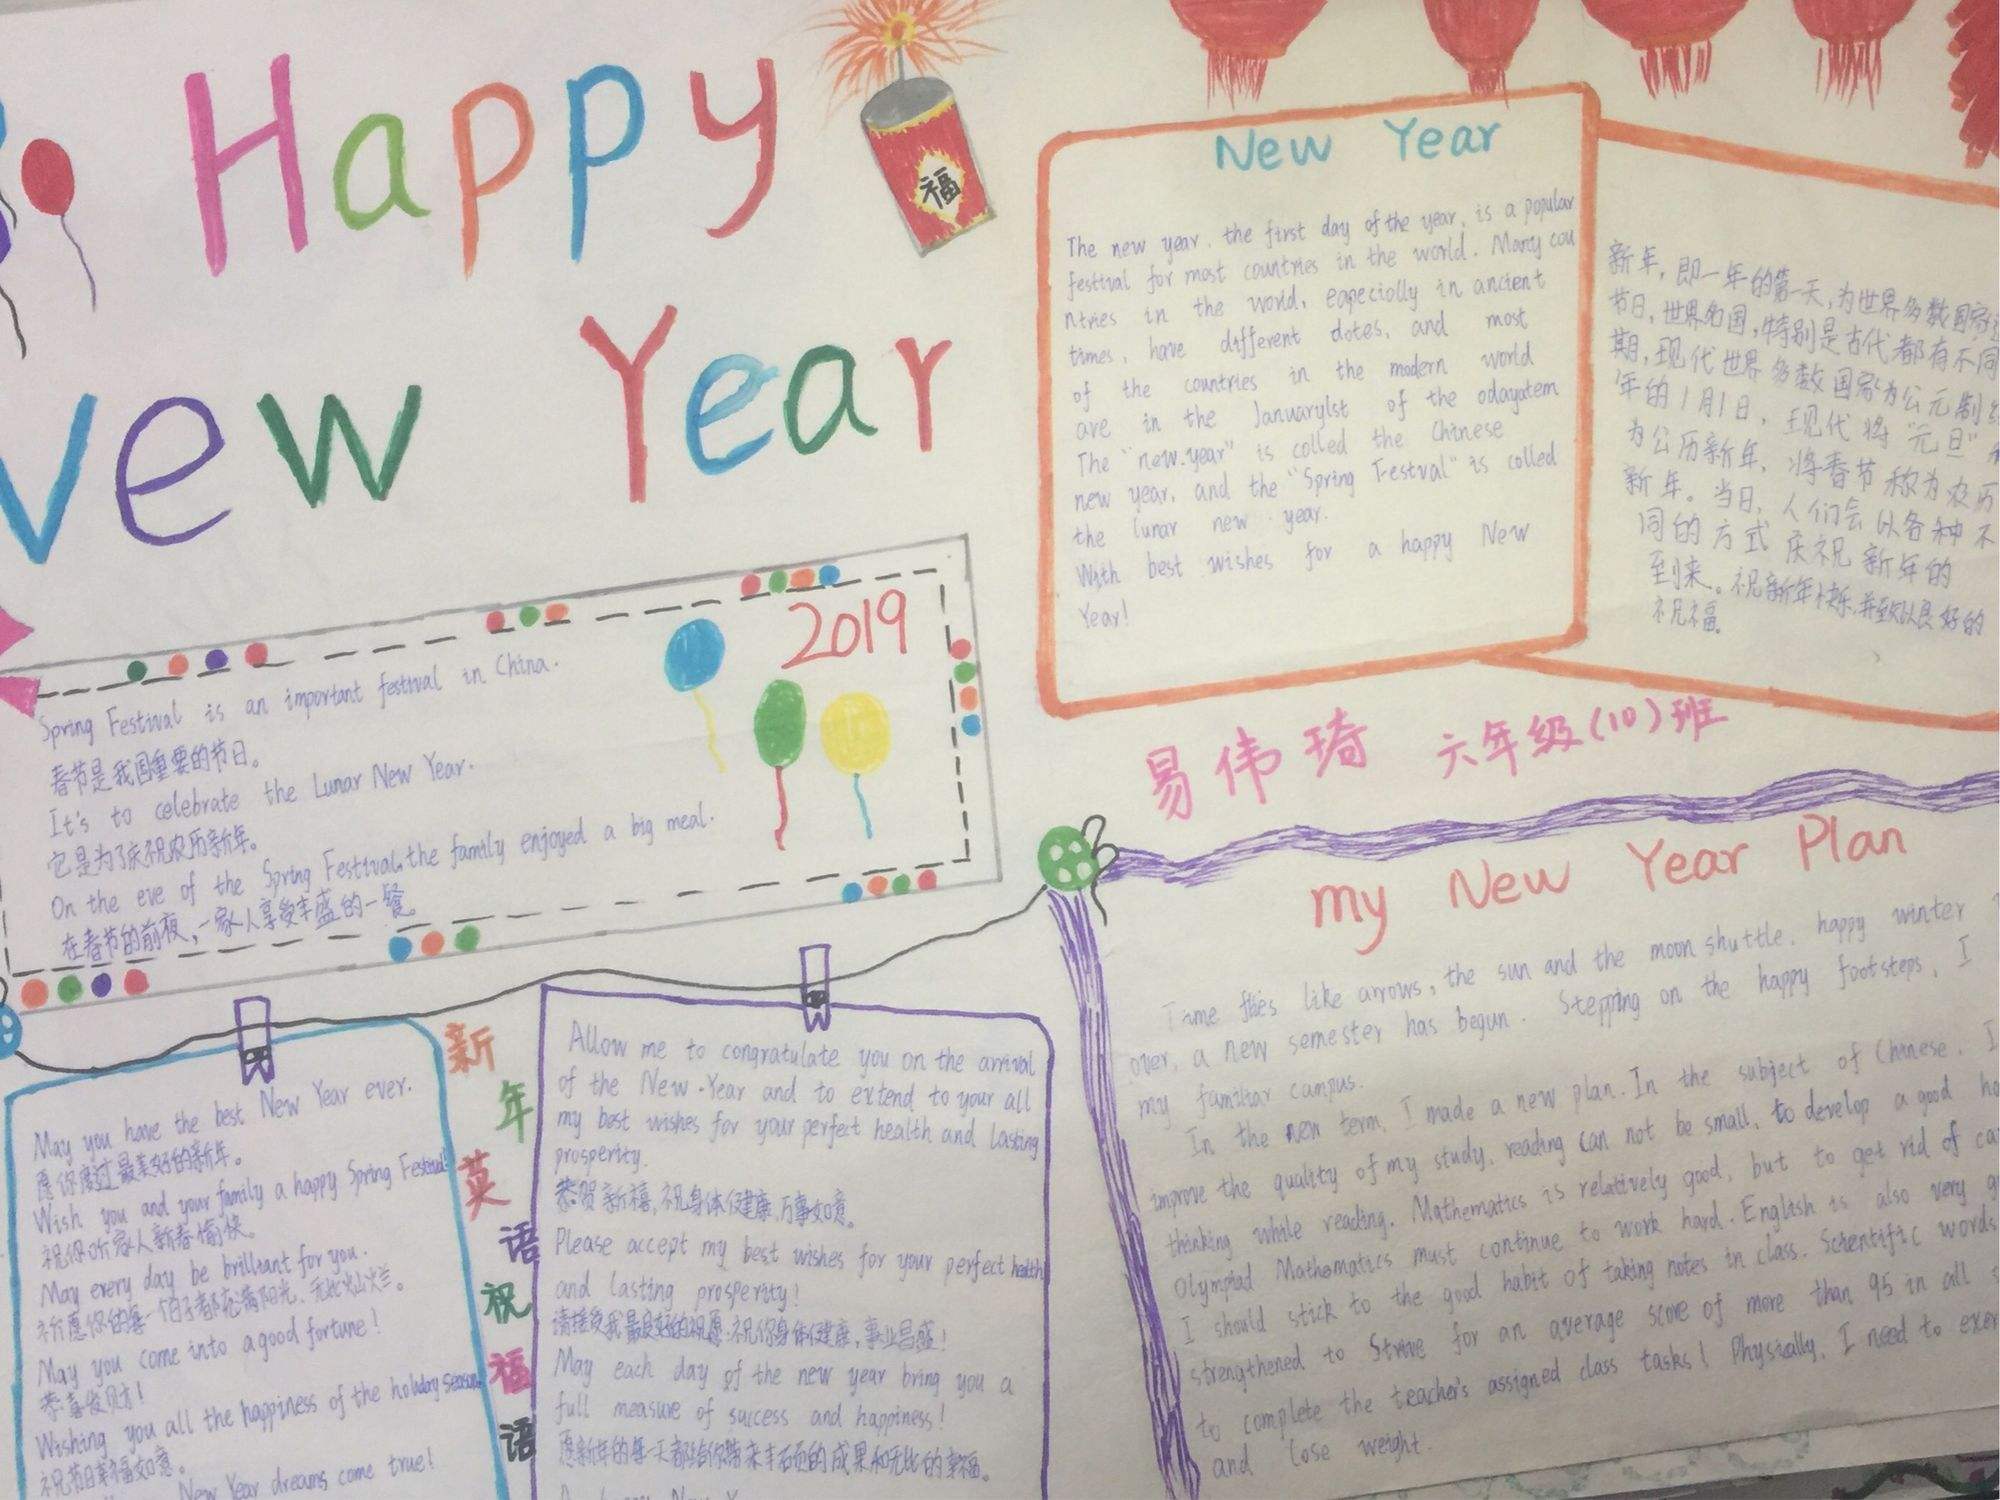 Happy
New Year
福
New Year
The new year, the first day of the year, is a popular
festival for most countries in the world. Many cou
ntries in the world, eapecially in ancient
times, have different dotes, and most
of the countries in the modern world
are in the January1st of the odayatem
The "new.year" is colled the Chinese
new year, and the "Spring Festval" is colled
the lunar new year.
With best wishes for a happy New
Year!
新年,即一年的第一天,为世界多数国家
节日,世界各国,特别是古代都有不同
期,现代世界多数国家为公元制
年的1月1日,现代将"元旦"
为公历新年,将春节称为农历
新年。当日,人们会以各种不
同的方式庆祝新年的
到来。祝新年快乐,并致以良好的
祝福。
2019
Spring Festival is an important festival in China.
春节是我国重要的节日。
It's to celebrate the Lunar New Year.
它是为了庆祝农历新年。
On the eve of the Spring Festival, the family enjoyed a big meal.
在春节的前夜,一家人享受丰盛的一餐。
易伟琦 六年级(10)班
新年英语祝福语
May you have the best New Year ever.
愿你度过最美好的新年。
Wish you and your family a happy Spring Festival
祝你听家人新春愉快。
May every day be brilliant for you.
祈愿你的每一个日子都充满阳光,无比灿烂。
May you come into a good fortune!
恭喜发财!
Wishing you all the happiness of the holiday season.
祝节日幸福如意。
New Year dreams come true!
Allow me to congratulate you on the arrival
of the New.Year and to extend to your all
my best wishes for your perfect health and lasting
prosperity.
恭贺新禧,祝身体健康,万事如意。
Please accept my best wishes for your perfect health
and lasting prosperity!
请接受我最良好的祝愿,祝你身体健康,事业昌盛!
May each day of the new year bring you a
full measure of success and happiness!
愿新年的每一天都给你带来丰硕的成果和无比的幸福。
my New Year Plan
Time flies like arrows, the sun and the moon shuttle, happy winter
over, a new semester has begun. Stepping on the happy footsteps, I
my familiar campus.
In the new term, I made a new plan. In the subject of Chinese, I
improve the quality of my study, reading can not be small, to develop a good
thinking while reading. Mathematics is relatively good, but to get rid of
Olympiad Mathematics must continue to work hard. English is also very
I should stick to the good habit of taking notes in class. Scientific words
strengthened to Strive for an average score of more than 95 in all
to complete the teacher's assigned class tasks! Physically, I need to
and lose weight.